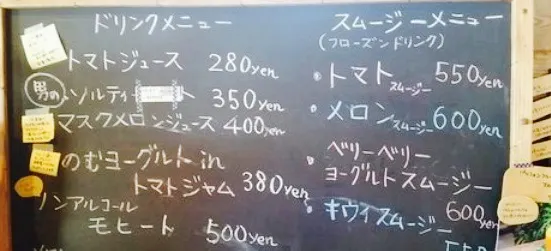 ドリンクメニュー
トマトジュース 280yen
男の ソルティー ト 350yen
マスクメロンジュース 400yen
のむヨーグルト in
トマトジャム 380yen
ノンアルコール
モヒート 500yen
スムージーメニュー
(フローズンドリンク)
・トマトスムージー 550yen
・メロンスムージー 600yen
・ベリーベリー
ヨーグルトスムージー
600yen
・キウイスムージー